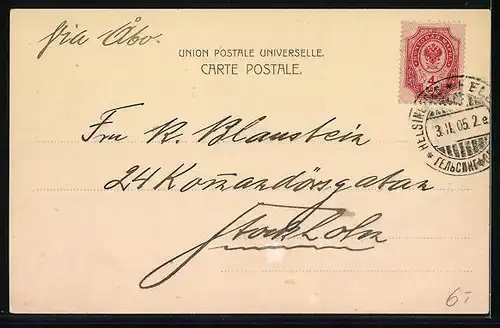 Via Åbo.
UNION POSTALE UNIVERSELLE.
CARTE POSTALE.
4
HELSINGFORS
3.II.05.2.e
ГЕЛЬСИНГФО
Fru R. Blaustein
24 Komandörsgatan
Stockholm
6.-